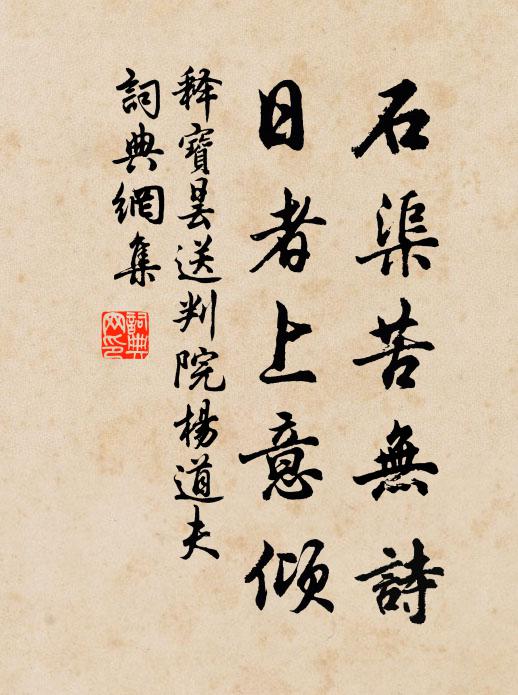 石渠苦無詩
日者上意傾
释寶曇送判院楊道夫
詞典網集
詞典網印